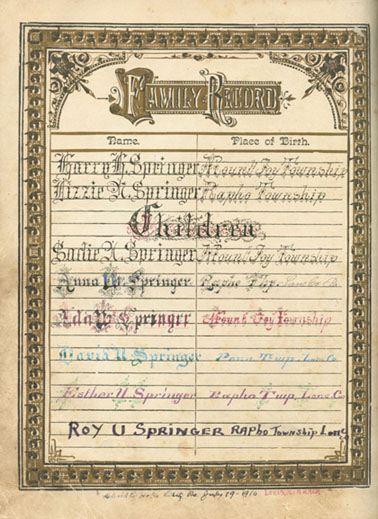 FAMILY RECORD
Name. Place of Birth.
Harry H. Springer Mount Joy Township
Lizzie N. Springer Rapho Township
Children
Sadie N. Springer Mount Joy Township
Anna U. Springer Rapho Twp.
Ada U. Springer Mount Joy Township
David U. Springer Penn Twp. Lanc Co.
Esther U Springer Rapho Twp, Lanc Co
ROY U SPRINGER RAPho Township Lanc